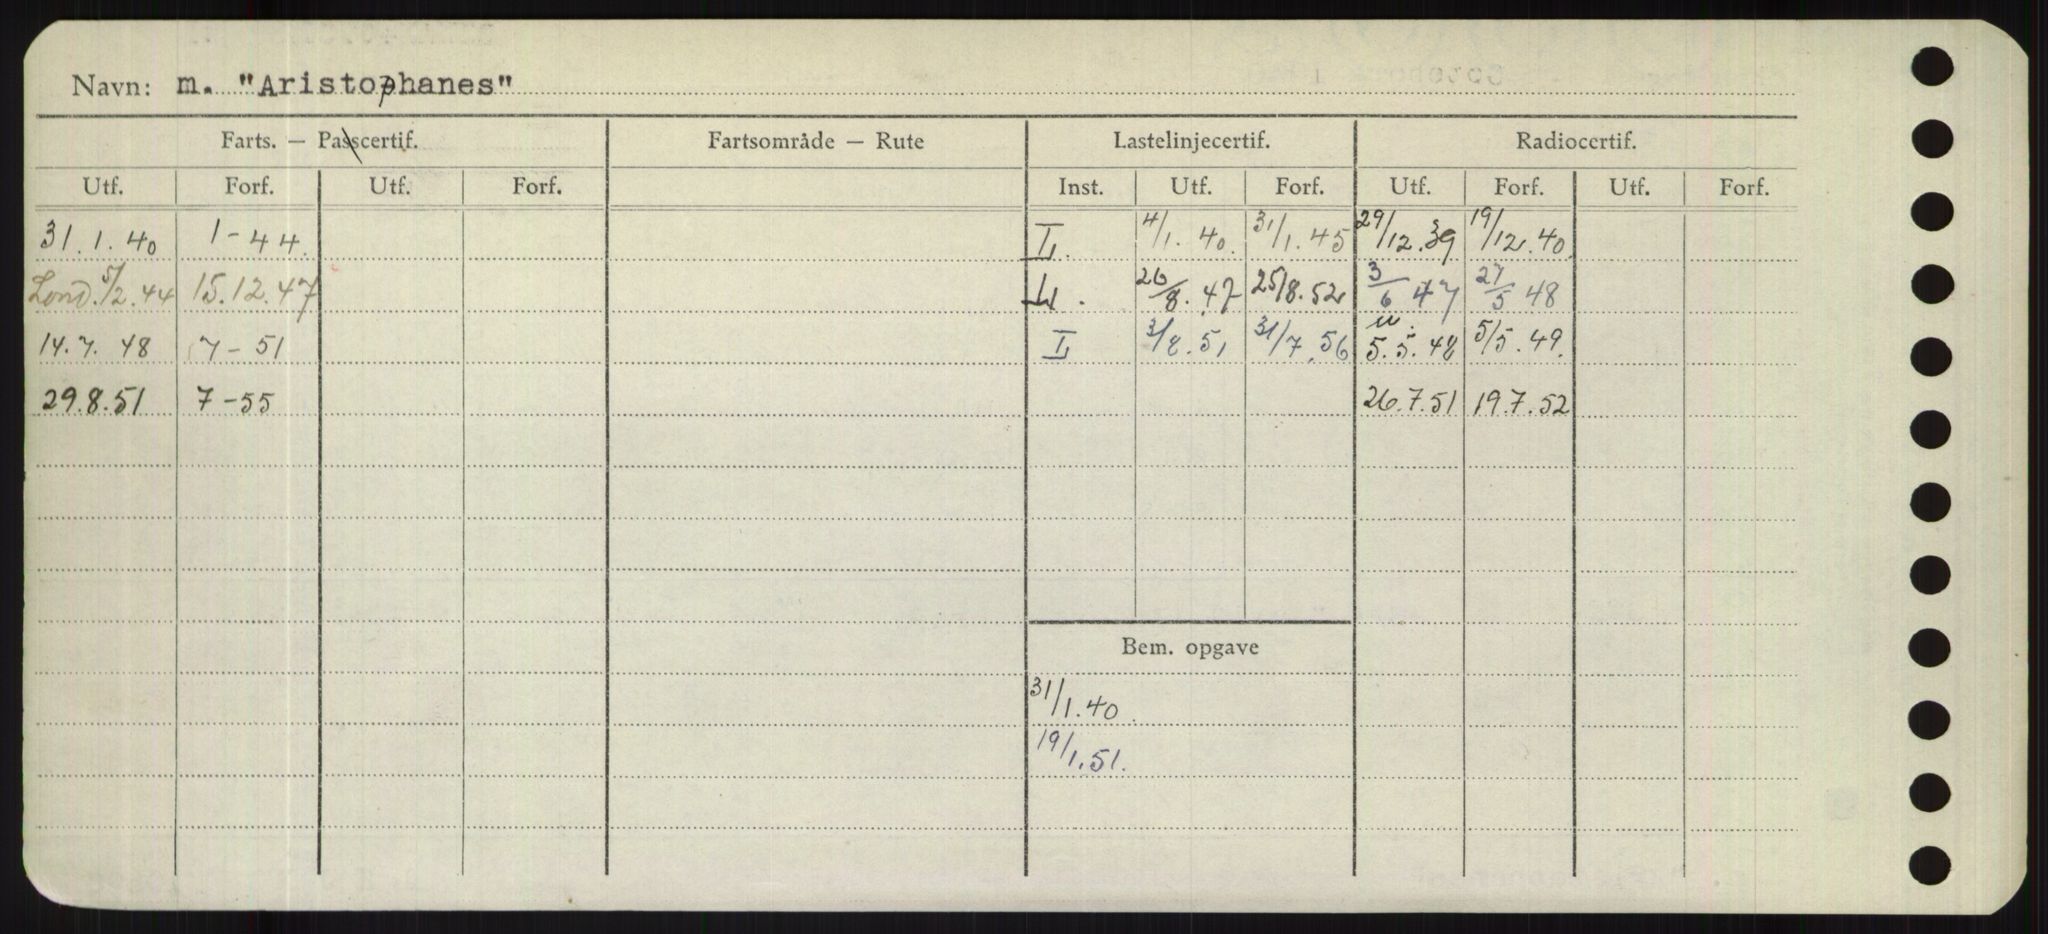 Navn: m. "Aristophanes"
Farts. — Passcertif. Fartsområde — Rute Lastelinjecertif. Radiocertif.
Utf. Forf. Utf. Forf. Inst. Utf. Forf. Utf. Forf. Utf. Forf.
31.1.40 1-44. L. 4/1.40. 31/1.45 29/12.39 19/12.40
Lond. 5/2.44 15.12.47 L. 26/8.47 25/8.52 3/6 47 27/5 48
14.7.48 7-51 L 3/8.51 31/7.56 5.5.48 5/5.49.
29.8.51 7-55 26.7.51 19.7.52
Bem. opgave
31/1.40.
19/1.51.